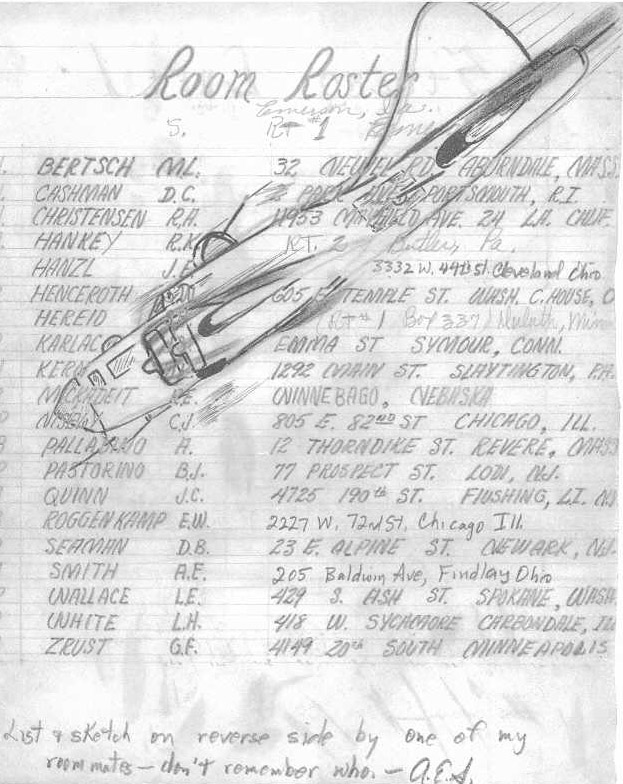 Room Roster
Emerson, Ia.
S. RT #1
BERTSCH M.L. 32 RD. ABURNDALE, MASS.
CASHMAN D.C. 2 PARK AVE. PORTSMOUTH, R.I.
CHRISTENSEN R.A. 11933 AVE. 24 LA. CALIF.
HANKEY R.K. RT. 2 Butler, Pa.
HANZL J.E. 3332 W. 44th St. Cleveland Ohio
HENCEROTH 605 E. TEMPLE ST. WASH. C. HOUSE, O
HEREID (Rt #1 Box 337) Duluth, Minn
KARLAC EMMA ST SYMOUR, CONN.
KERN 1292 MAIN ST. SLAYTINGTON, PA.
WINNEBAGO, NEBRSKA
C.J. 805 E. 82ND ST CHICAGO, ILL.
A. 12 THORNDIKE ST. REVERE, MASS
PASTORINO B.J. 77 PROSPECT ST. LODI, N.J.
QUINN J.C. 4725 190th ST. FLUSHING, L.I. N.
ROGGENKAMP E.W. 2227 W. 72nd St. Chicago Ill.
SEAMAN D.B. 23 E. ALPINE ST. NEWARK, N.J.
SMITH A.E. 205 Baldwin Ave, Findlay Ohio
WALLACE L.E. 429 S. ASH ST. SPOKANE, WASH
WHITE L.H. 418 W. SYCAMORE CARBONDALE,
ZRUST G.F. 4149 20th SOUTH MINNEAPOLIS
List & sketch on reverse side by one of my
roommates - don't remember who. - A.E.S.